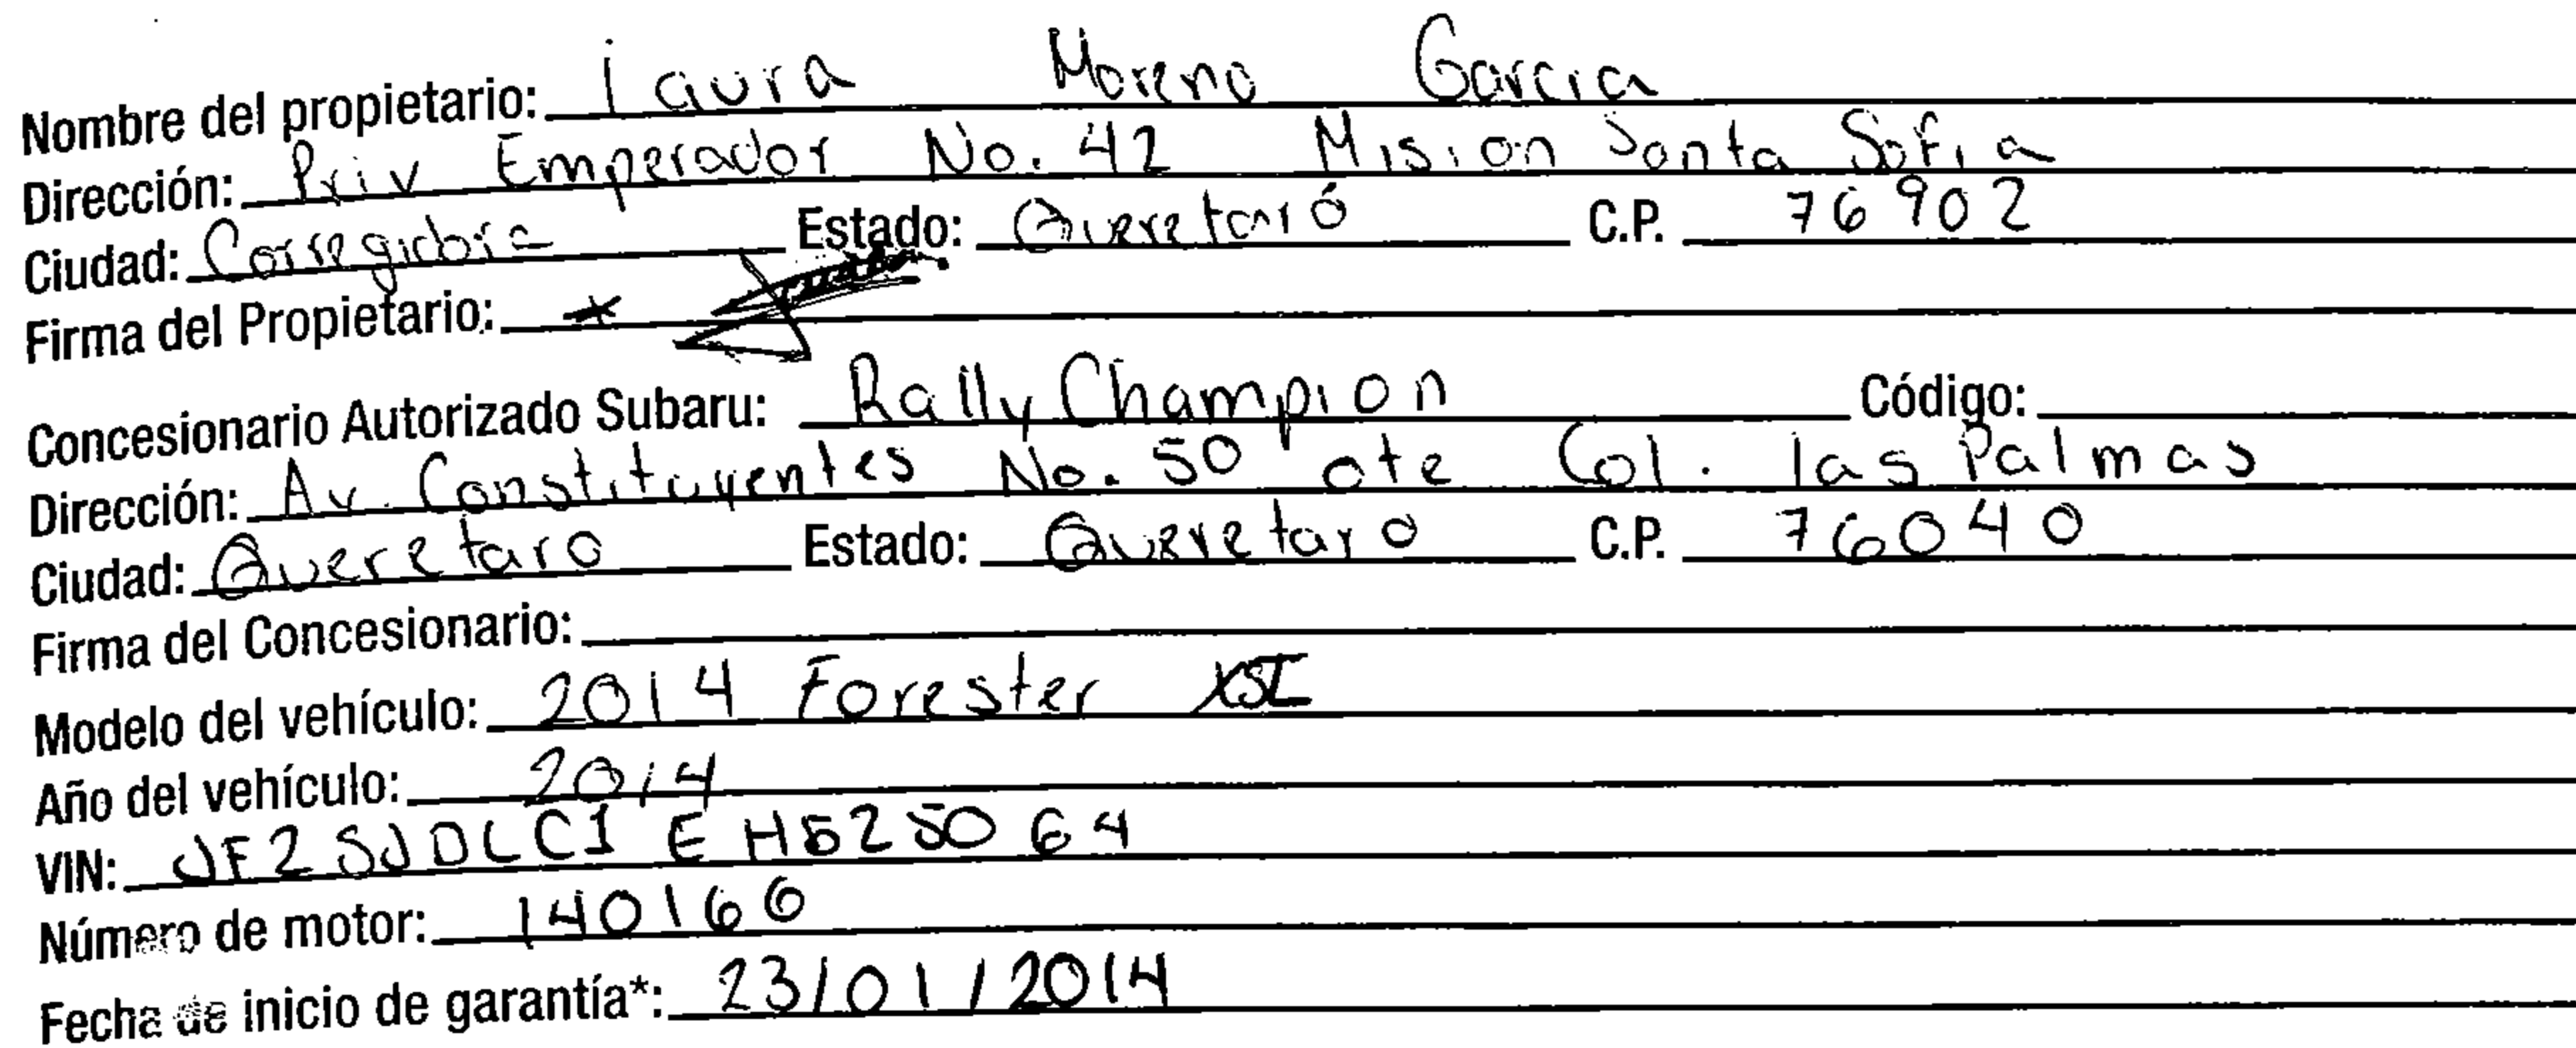 Nombre del propietario: Laura Moreno Garcia
Dirección: Priv Emperador No. 42 Mision Santa Sofia
Ciudad: Corregidora Estado: Queretaró C.P. 76902
Firma del Propietario: x
Concesionario Autorizado Subaru: Rally Champion Código:
Dirección: Av. Constituyentes No. 50 ote Col. las Palmas
Ciudad: Queretaro Estado: Queretaro C.P. 76040
Firma del Concesionario:
Modelo del vehículo: 2014 Forester
Año del vehículo: 2014
VIN: JF2SJDLC1EH525064
Número de motor: 140166
Fecha de inicio de garantía*: 23/01/2014